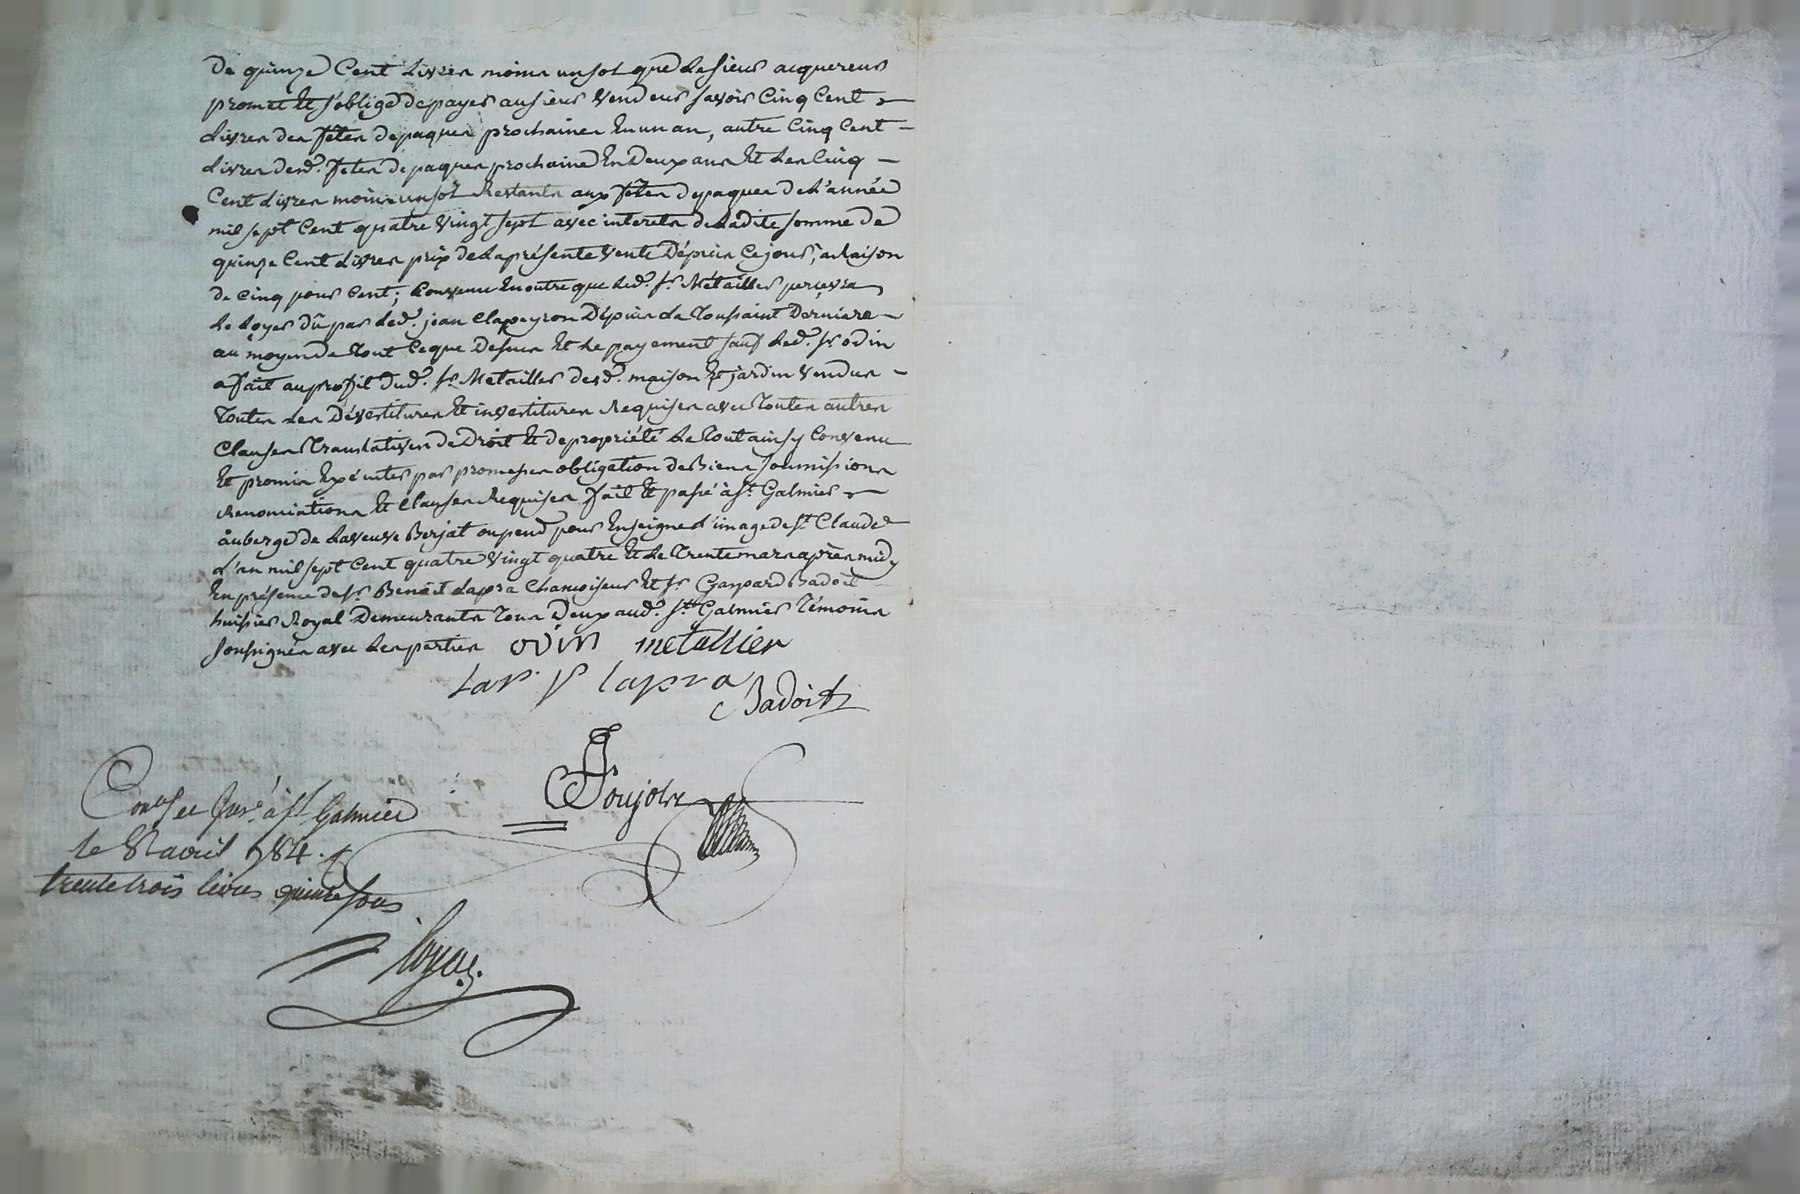 De quinze Cent Livres moins un sol que le sieur acquereur
promet Et s'oblige de payer au sieur Vendeur savoir Cinq Cent
Livres des fêtes de paques prochaines En un an, autre Cinq Cent
Livres desd. fêtes de paques prochaine En Deux ans Et Les Cinq
Cent Livres moins un sol Restants aux fêtes de paques de L'année
mil sept Cent quatre Vingt sept avec interets de Ladite somme de
quinze Cent Livres prix de La présente Vente Dépuis Ce jour, a Raison
de Cinq pour Cent; Convenu En outre que Led. sr. Métailler percevra
Le Loyer dû par Led. jean Clapeyron Dépuis La Toussaint Derniere
au moyen de Tout Ce que Dessus Et Le payement sauf Led. sr odin
a fait au profit Dud. sr. Métailler desd. maison Et jardin Vendus
Toutes Les Dévestitures Et investitures Requises avec Toutes autres
Clauses Translatives de Droit Et de propriété Le Tout ainsy Convenu
Et promis Exécuter par promesses obligation de Biens soumissions
Renonciations Et Clauses Requises fait Et passé à st. Galmier
auberge de La veuve Berjat ou pend pour Enseigne L'image de st. Claude
L'an mil sept Cent quatre Vingt quatre Et Le Trente mars après midy
En présence de sr. Benoit Lapra Chamoiseur Et sr. Gaspard Badoit
huissier Royal Demeurants Tous Deux aud. st. Galmier Témoins
soussignés avec Les parties odin metallier
lapra
Badoit
Poujolx
Con. et Jns. à st. Galmier
le 8 avril 1784.
trente trois livres quinze sous